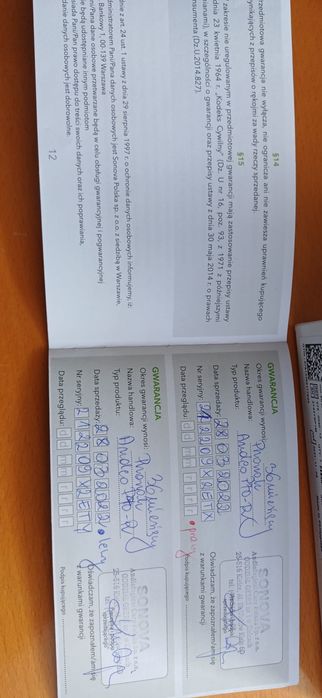 §14
Przedmiotowa gwarancja nie wyłącza, nie ogranicza ani nie zawiesza uprawnień kupującego
wynikających z przepisów o rękojmi za wady rzeczy sprzedanej.
§15
W zakresie nie uregulowanym w przedmiotowej gwarancji mają zastosowanie przepisy ustawy
z dnia 23 kwietnia 1964 r. „Kodeks Cywilny” (Dz. U nr 16, poz. 93, z 1971 z późniejszymi
zmianami), w szczególności o gwarancji oraz przepisy ustawy z dnia 30 maja 2014 r. o prawach
konsumenta (Dz.U.2014.827).
zgodnie z art. 24 ust. 1 ustawy z dnia 29 sierpnia 1997 r. o ochronie danych osobowych informujemy, iż:
administratorem Pani/Pana danych osobowych jest Sonova Polska sp. z o.o. z siedzibą w Warszawie,
Bankowy 1, 00-139 Warszawa
Pani/Pana dane osobowe przetwarzane będą w celu obsługi gwarancyjnej i pogwarancyjnej
nie będą udostępniane innym podmiotom
posiada Pani/Pan prawo dostępu do treści swoich danych oraz ich poprawiania,
podanie danych osobowych jest dobrowolne.
12
GWARANCJA
Okres gwarancji wynosi: 36 miesięcy
Nazwa handlowa: Phonak
Typ produktu: Audeo
Data sprzedaży: 28032022
Nr seryjny: • prawy
Data przeglądu: d d m m r r r r
SONOVA
Oświadczam, że zapoznałem/am się
z warunkami gwarancji
Podpis kupującego
GWARANCJA
Okres gwarancji wynosi: 36 miesięcy
Nazwa handlowa: Phonak
Typ produktu: Audeo
Data sprzedaży: 28032022 • lewy
Nr seryjny: 212209X2ETY
Data przeglądu: d d m m r r r r
SONOVA
Oświadczam, że zapoznałem/am się
z warunkami gwarancji
Podpis kupującego